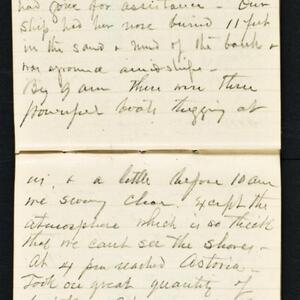 had gone for assistance - Our
ship had her nose buried 11 feet
in the sand & mud of the bank &
was aground amidships -
By 9 am there were three
powerful boats tugging at
us, & a little before 10 am
we swung clear. Except the
atmosphere which is so thick
that we can't see the shores -
At 4 pm reached Astoria -
Took on great quantity of